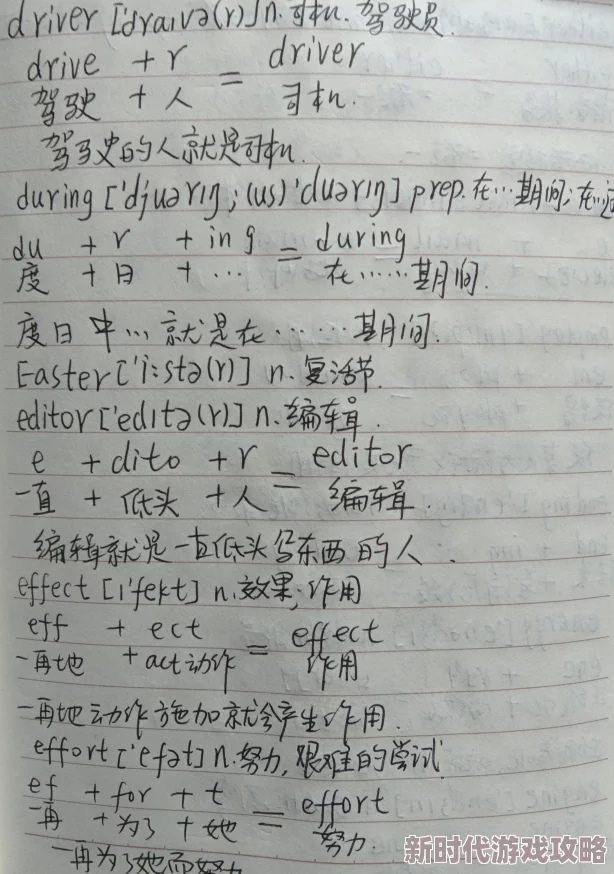 driver ['draɪvə(r)] n. 司机. 驾驶员.
drive + r = driver
驾驶 + 人 司机.
驾驶的人就是司机.
during ['djuərɪŋ; (us) 'duərɪŋ] prep. 在…期间; 在
du + r + ing = during
度 + 日 + … 在……期间.
度日中…就是在……期间.
Easter ['i:stə(r)] n. 复活节.
editor ['edɪtə(r)] n. 编辑.
e + dito + r = editor
一直 + 低头 + 人 编辑.
编辑就是一直低头写东西的人.
effect [ɪ'fekt] n. 效果; 作用
eff + ect = effect
一再地 + act动作 作用
一再地动作施加就会产生作用.
effort ['efət] n. 努力, 艰难的尝试
ef + for + t = effort
一再 + 为了 + 她 努力
一再为了她而努力
新时代游戏攻略